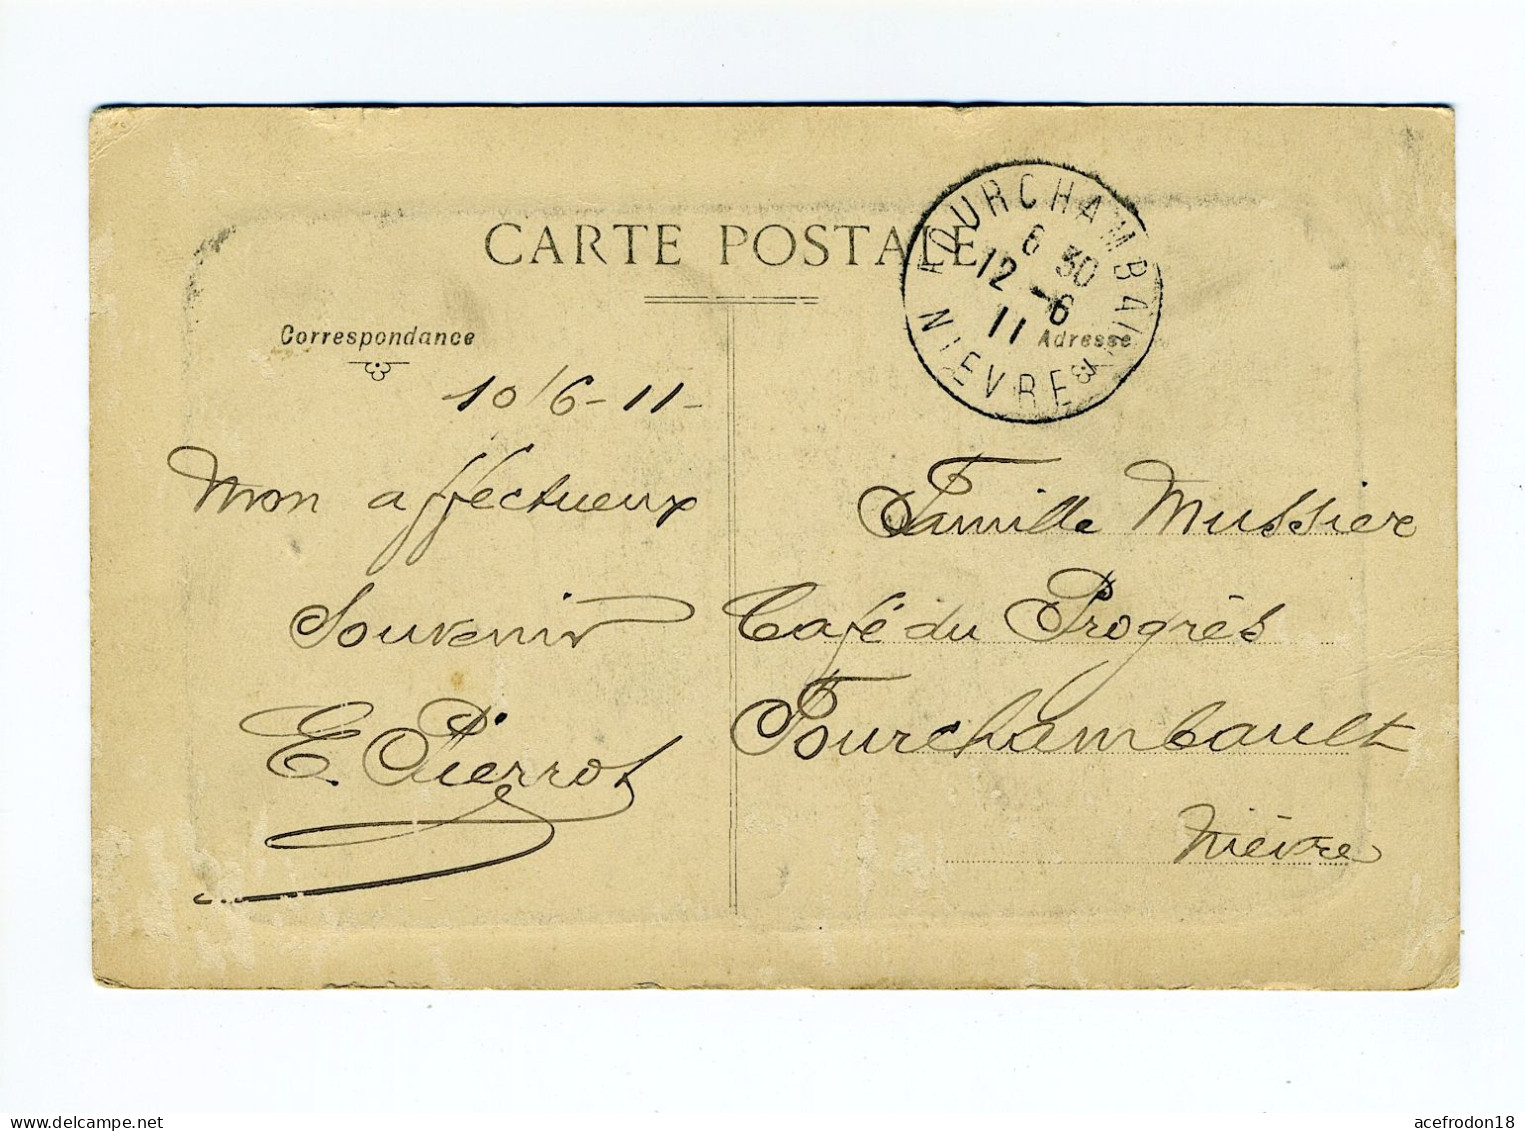 CARTE POSTALE
FOURCHAMBAULT
6 30
12 -6
11
NIEVRE
Correspondance
Adresse
10/6-11-
Mon affectueux
Souvenir
E. Pierrot
Famille Mussier
Café du Progrès
Fourchambault
Nièvre
acefrodon18